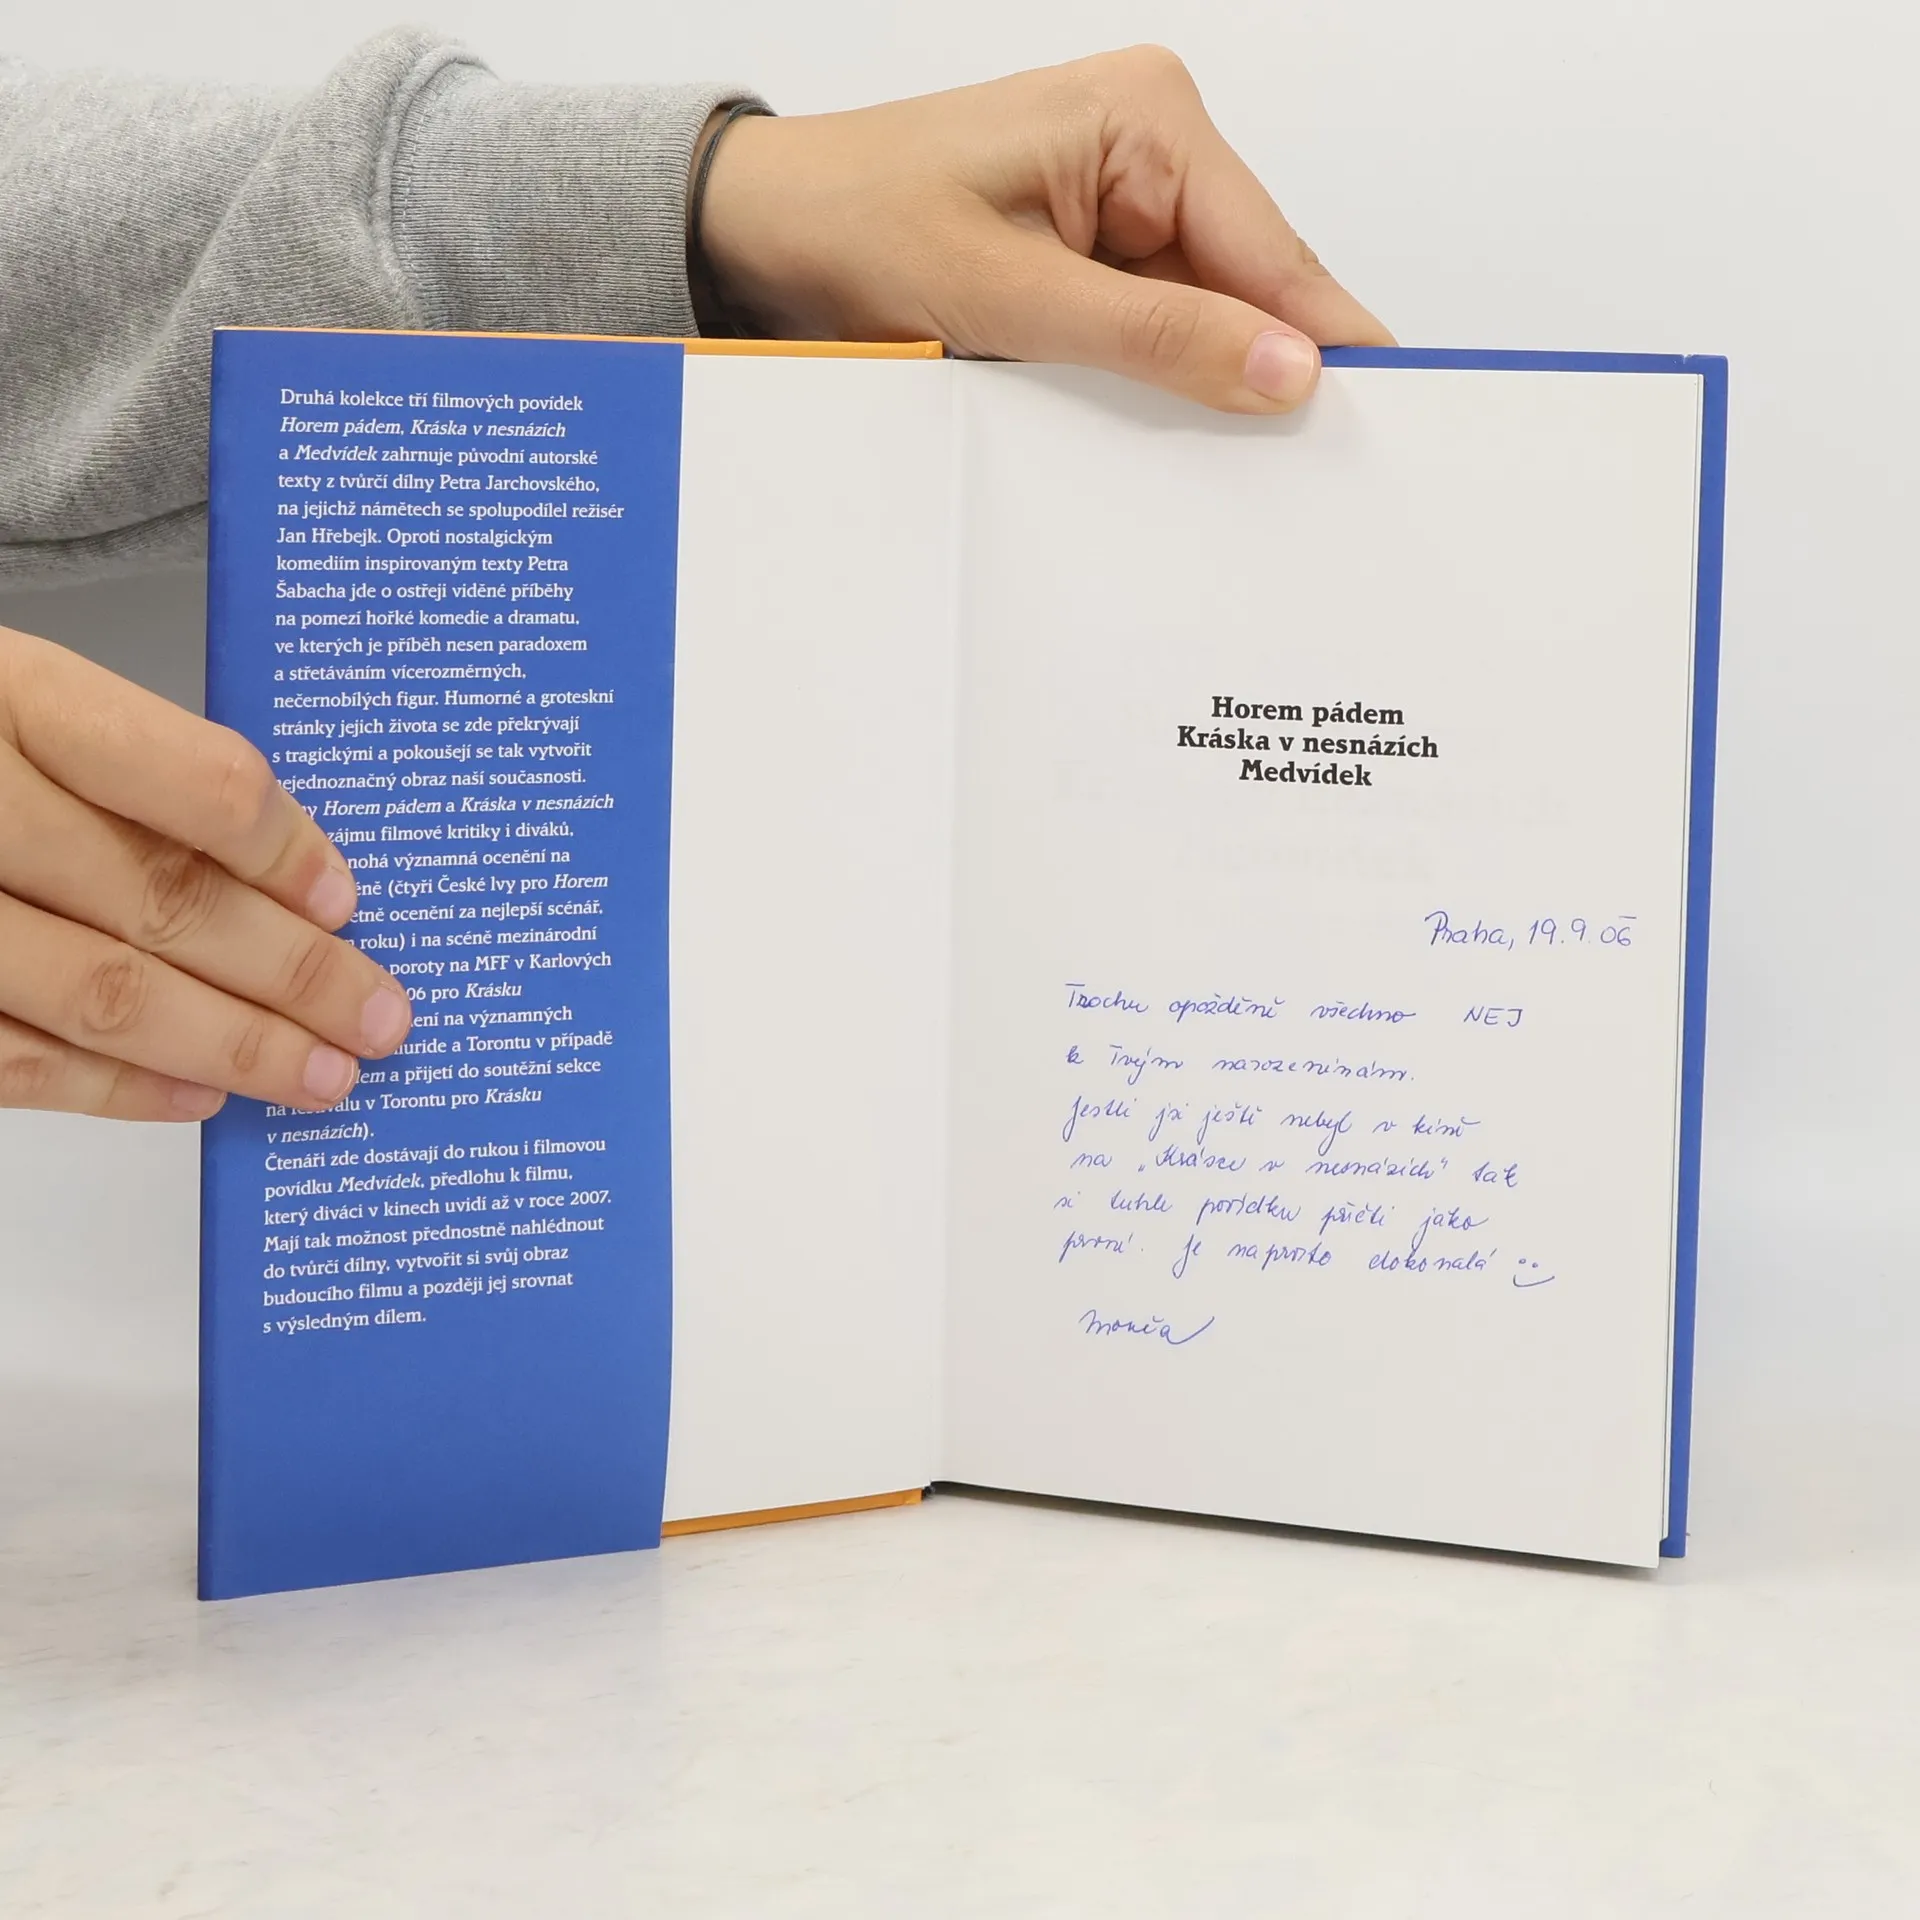 Druhá kolekce tří filmových povídek
Horem pádem, Kráska v nesnázích
a Medvídek zahrnuje původní autorské
texty z tvůrčí dílny Petra Jarchovského,
na jejichž námětech se spolupodílel režisér
Jan Hřebejk. Oproti nostalgickým
komediím inspirovaným texty Petra
Šabacha jde o ostřeji viděné příběhy
na pomezí hořké komedie a dramatu,
ve kterých je příběh nesen paradoxem
a střetáváním vícerozměrných,
nečernobílých figur. Humorné a groteskní
stránky jejich života se zde překrývají
s tragickými a pokoušejí se tak vytvořit
nejednoznačný obraz naší současnosti.
Horem pádem a Kráska v nesnázích
zájmu filmové kritiky i diváků,
významná ocenění na
(čtyři České lvy pro Horem
ocenění za nejlepší scénář,
roku) i na scéně mezinárodní
poroty na MFF v Karlových
06 pro Krásku
na významných
a Torontu v případě
a přijetí do soutěžní sekce
na festivalu v Torontu pro Krásku
v nesnázích).
Čtenáři zde dostávají do rukou i filmovou
povídku Medvídek, předlohu k filmu,
který diváci v kinech uvidí až v roce 2007.
Mají tak možnost přednostně nahlédnout
do tvůrčí dílny, vytvořit si svůj obraz
budoucího filmu a později jej srovnat
s výsledným dílem.
Horem pádem
Kráska v nesnázích
Medvídek
Praha, 19.9.06
Trochu opožděně všechno NEJ
k Tvým narozeninám.
Jestli jsi ještě nebyl v kině
na „Krásce v nesnázích" tak
si tuhle povídku přečti jako
první. Je naprosto dokonalá
Monča